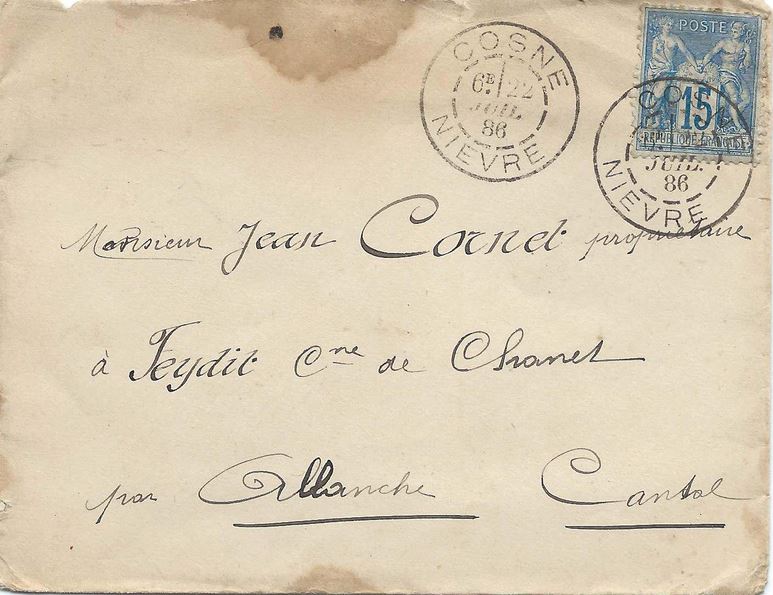 COSNE
6E 22
JUIL
86
NIEVRE
POSTE
15
REPUBLIQUE FRANÇAISE
COSNE
JUIL.
86
NIEVRE
Monsieur Jean Cornet propriétaire
à Feydit Cne de Chanet
par Allanche Cantal